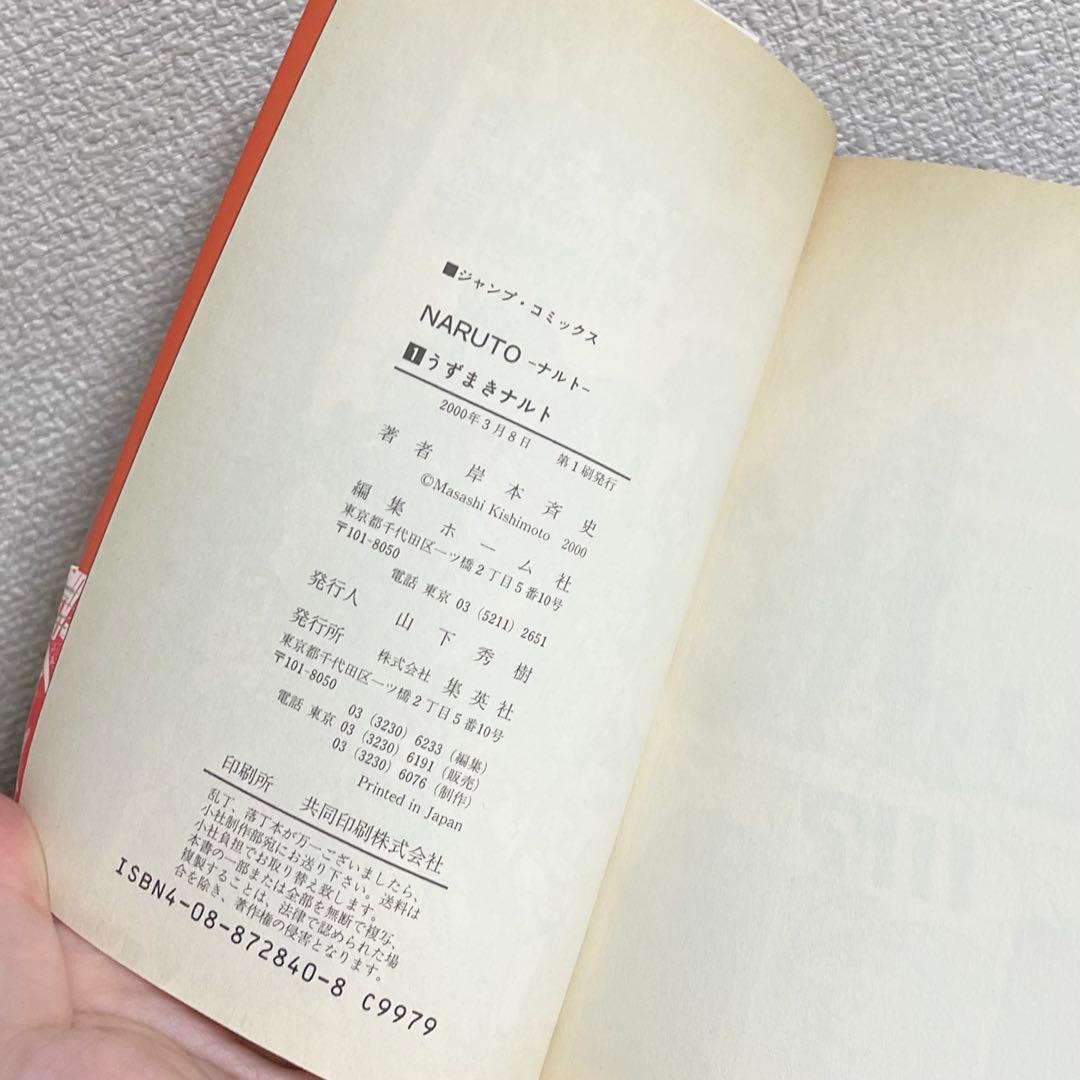 ■ジャンプ・コミックス
NARUTO -ナルト-
1 うずまきナルト
2000年3月8日 第1刷発行
著者 岸本斉史
©Masashi Kishimoto 2000
編集 ホーム社
東京都千代田区一ツ橋2丁目5番10号
〒101-8050
電話 東京 03 (5211) 2651
発行人 山下秀樹
発行所 株式会社 集英社
東京都千代田区一ツ橋2丁目5番10号
〒101-8050
03 (3230) 6233 (編集)
電話 東京 03 (3230) 6191 (販売)
03 (3230) 6076 (制作)
Printed in Japan
印刷所 共同印刷株式会社
乱丁、落丁本が万一ございましたら、
小社制作部宛にお送り下さい。送料は
小社負担でお取り替え致します。
本書の一部または全部を無断で複写、
複製することは、法律で認められた場
合を除き、著作権の侵害となります。
ISBN4-08-872840-8 C9979